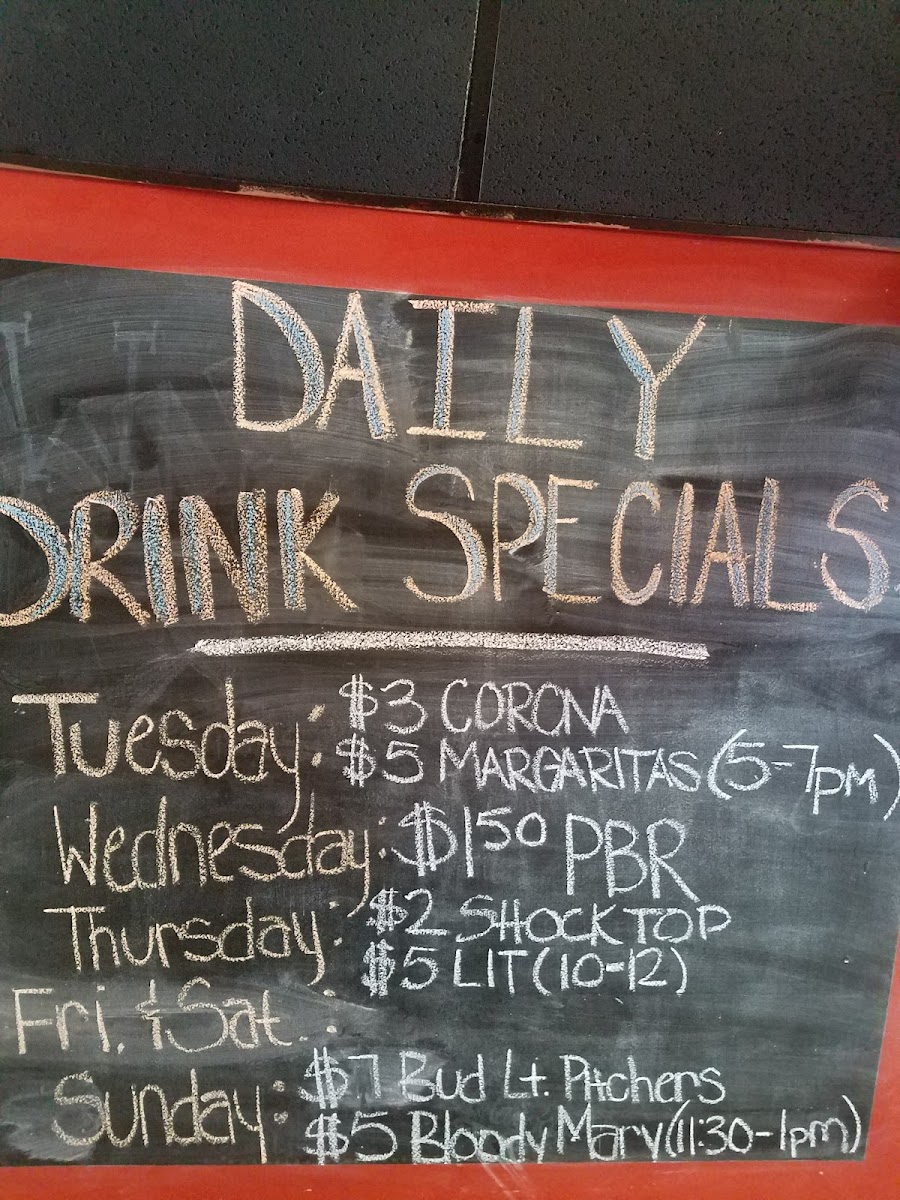 DAILY
DRINK SPECIALS
Tuesday: $3 CORONA
$5 MARGARITAS (5-7PM)
Wednesday: $150 PBR
Thursday: $2 SHOCK TOP
$5 LIT (10-12)
Fri. & Sat. :
Sunday: $7 Bud Lt. Pitchers
$5 Bloody Mary (11:30-1pm)